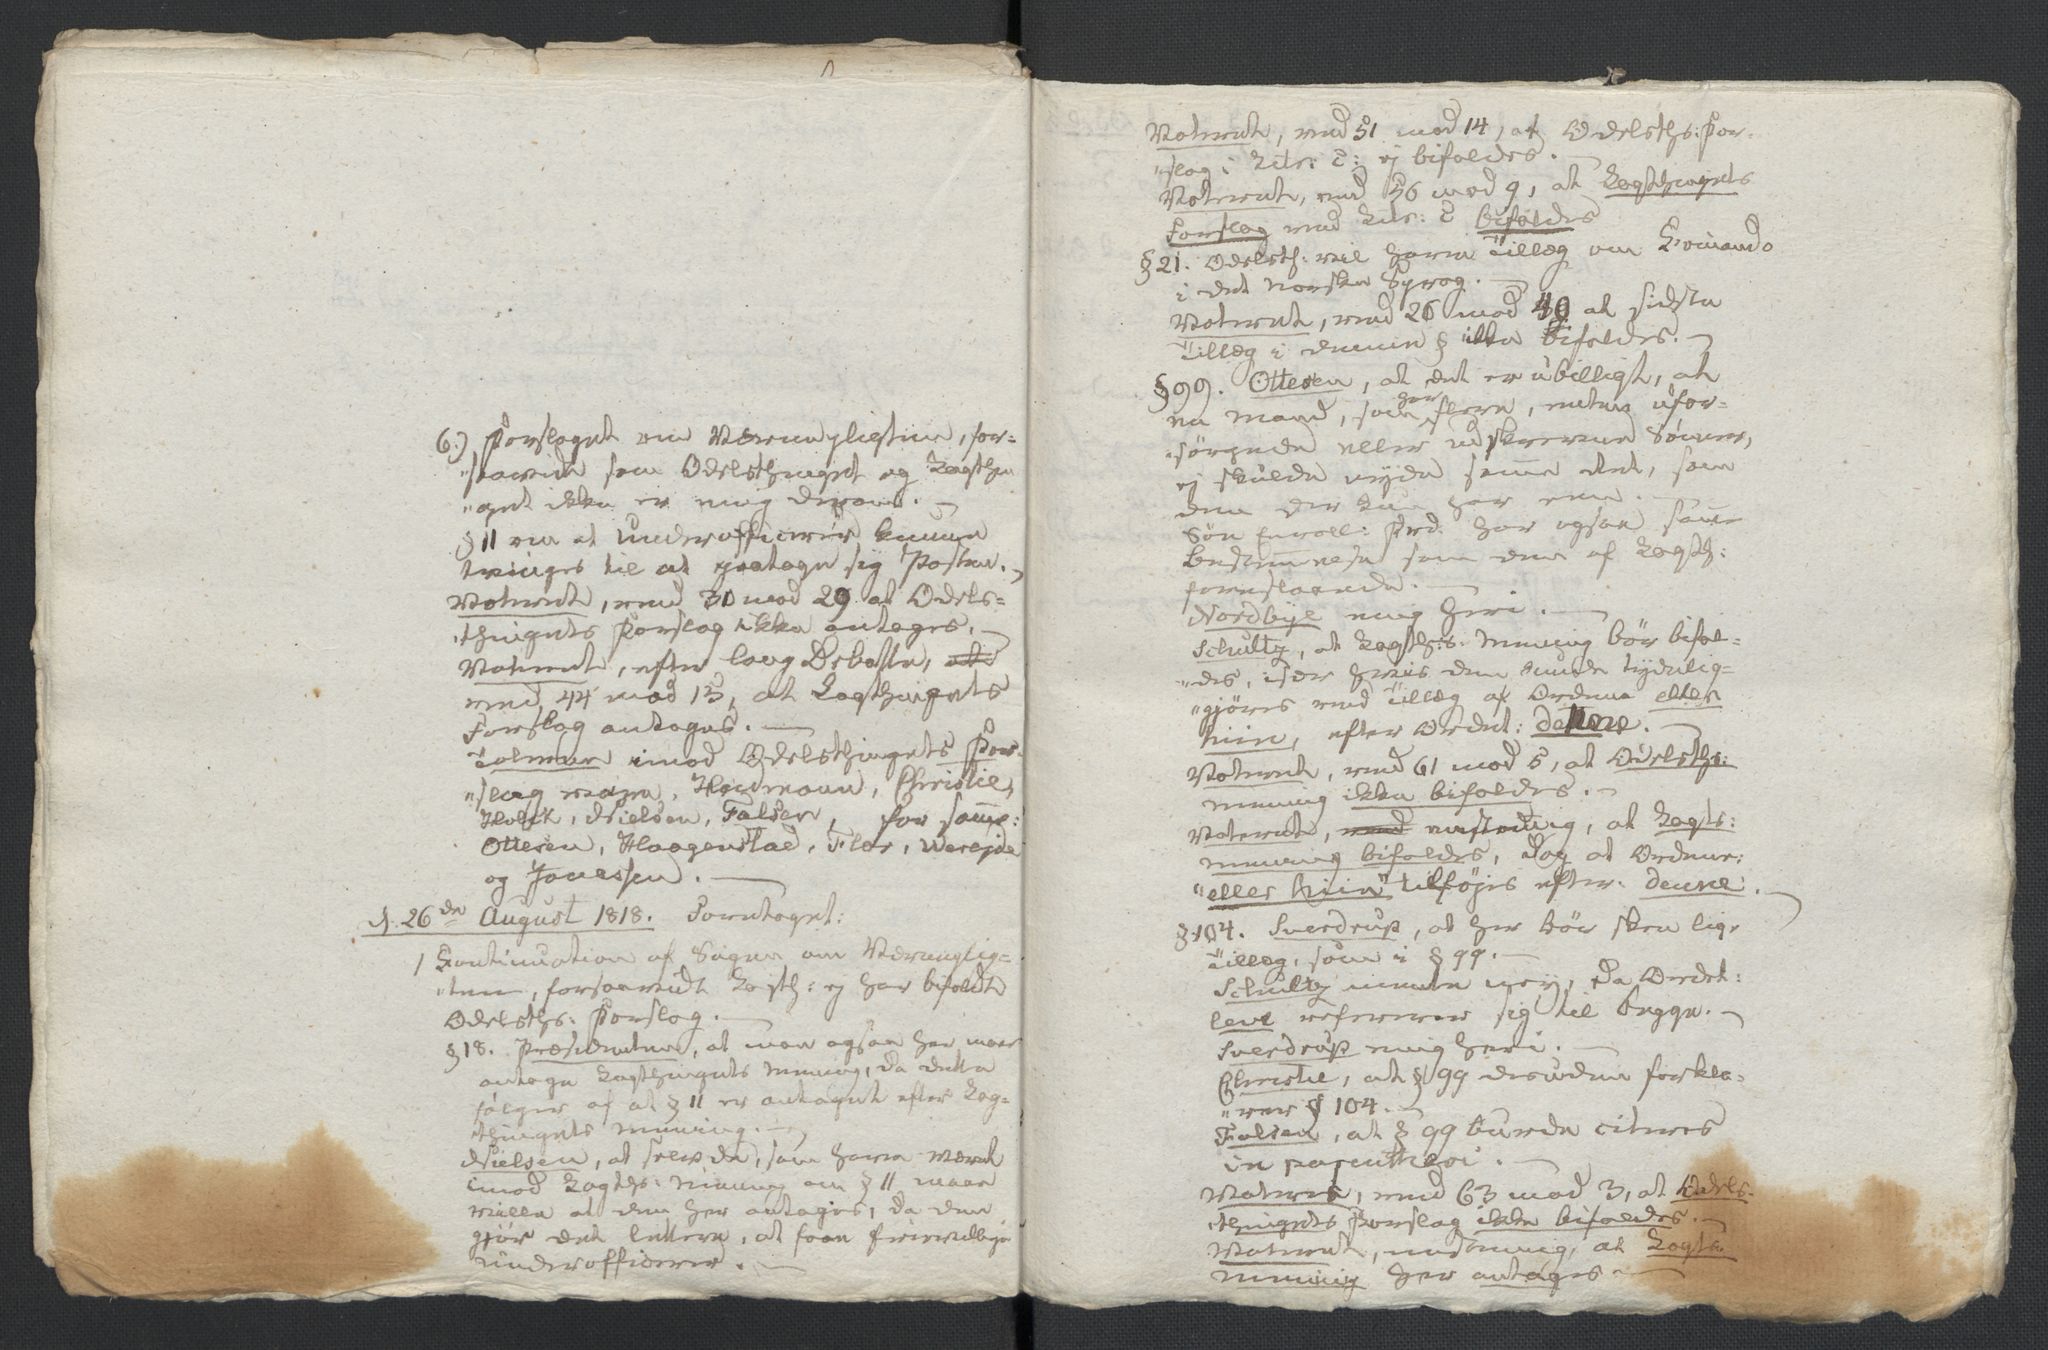 6.) Forslaget om Værnepligten, for-
"saavidt som Odelsthinget og Lagthin
"get ikke er enig derom.
§ 11 om at Underofficerer kunne
tvinges til at paatage sig Posten.
Voteredt, med 30 mod 29 at Odels-
thingets Forslag ikke antages.
Voteredt, efter lang Debatte,
med 44 mod 13, at Lagthingets
Forslag antages.
Talerne imod Odelsthingets For-
"slag vare, Heidmann, Christie,
Holck, Nielsen, Falsen, for samme:
Ottesen, Haagenstad, Flor, Wereide
og Jonassen.
d. 26de August 1818. Foretaget:
1 Continuation af Sagen om Værneplig-
"ten, forsaavidt Lagth: ej har bifaldt
Odelsths: Forslag.
§ 18. Præsidenten, at man ogsaa her maae
antage Lagthingets Mening, da dette
følger af at § 11 er antaget efter Lag-
thingets Mening.
Nielsen, at selv de, som have været
imod Lagths: Mening om § 11 maae
ville at den her antages, da den
gjør det lettere, at faae frivillige
Underofficerer.
Voteredt, med 51 mod 14, at Odelsths: For-
"slag i Litr: C: ej bifaldes.
Voteredt, med 56 mod 9, at Lagthingets
Forslag med Litr: C bifaldes
§ 21. Odelsth: vil have Tillæg om Comando
i det norske Sprog.
Voteredt, med 26 mod 40 at sidste
Tillæg i denne § ikke bifaldes.
§ 99. Ottesen, at det er ubilligt, at
en Mand, som har flere, enten ufor-
sørgede eller udskrevne Sønner,
ej skulde nyde samme Ret, som
den der kun har een
Søn enroll: Prd. har ogsaa samme
Bestemmelse som den af Lagth:
foreslaaede.
Nordbye enig heri.
Schultz, at Lagths: Mening bør bifal-
"des, især hvis den kunde tydelig-
"gjøres med Tillæg af Ordene eller
hiin, efter Ordet: denne.
Voteredt, med 61 mod 5, at Odelsths:
Mening ikke bifaldes.
Voteredt, med eenstemmig, at Lagts:
Mening bifaldes, dog at Ordene:
"eller hiin" tilføjes efter: denne.
§ 104. Sverdrup, at her bør skee lige
Tillæg, som i § 99.
Schultz meente nej, da Ordet:
leve refererer sig til begge.
Sverdrup enig heri.
Christie, at § 99 desuden forkla-
"rer § 104.
Falsen, at § 99 burde citeres
in parenthesi.
Voteres, med 63 mod 3, at Odels-
thingets Forslag ikke bifaldes.
Voteredt, eenstemmig, at Lagts
Mening her antages